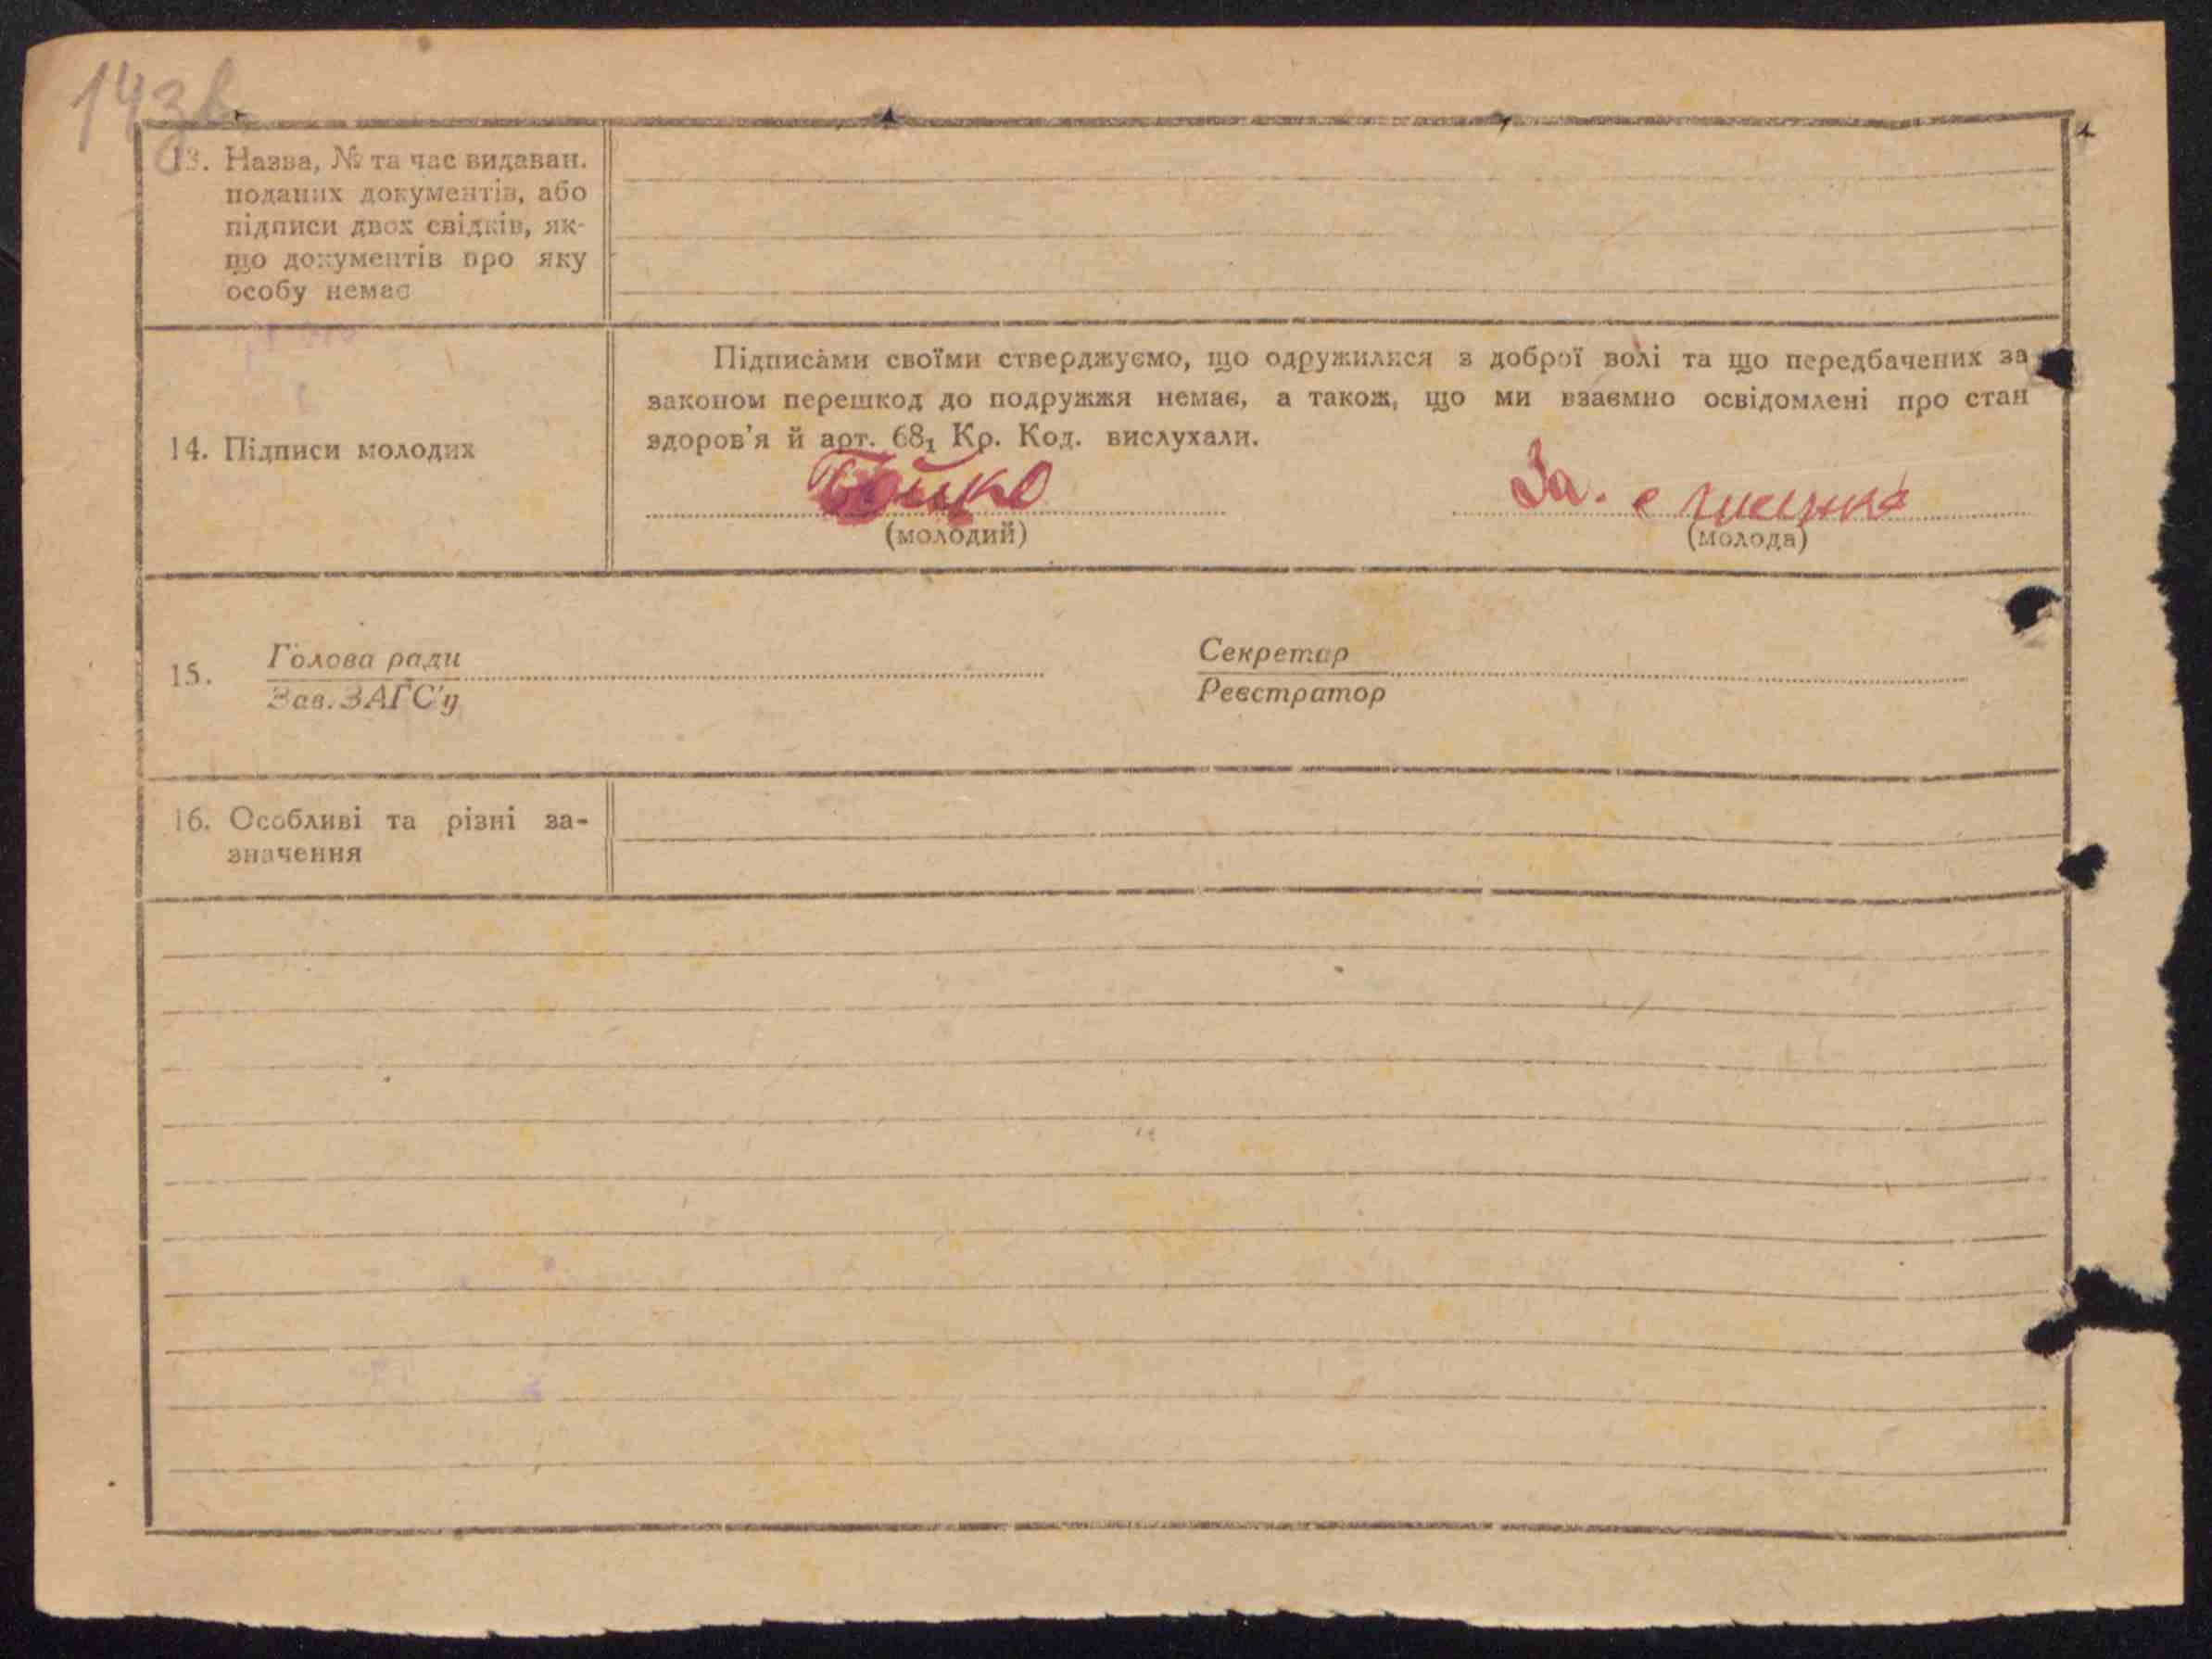 14зв
13. Назва, № та час видаван.
поданих документів, або
підписи двох свідків, як-
що документів про яку
особу немає
14. Підписи молодих
Підписами своїми стверджуємо, що одружилися з доброї волі та що передбачених за
законом перешкод до подружжя немає, а також, що ми взаємно освідомлені про стан
здоров'я й арт. 68₁ Кр. Код. вислухали.
Бойко
За.
(молодий)
(молода)
15. Голова ради
Зав. ЗАГС'у
Секретар
Реєстратор
16. Особливі та різні за-
значення